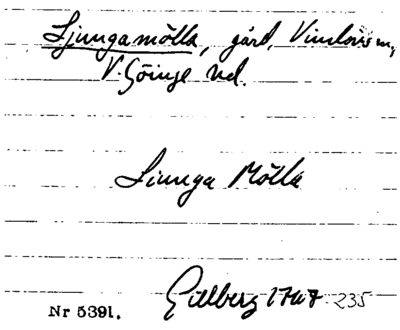 Ljungamölla, gård, Vinslövs sn,
V. Göinge hd.
Liunga Mölla
Gillberg 1767 235
Nr 5391.